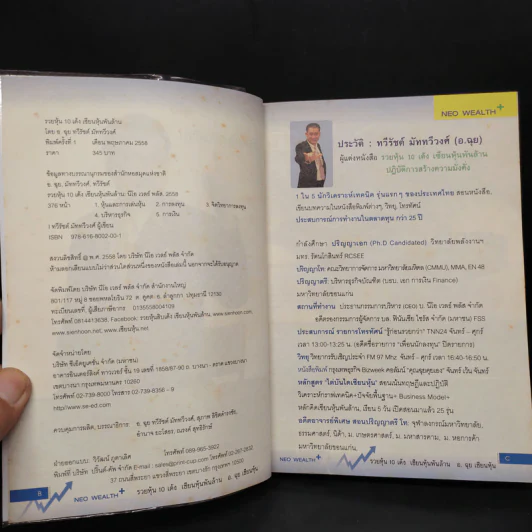 รวยหุ้น 10 เด้ง เซียนหุ้นพันล้าน
โดย อ. ฉุย ทวีรัชต์ มัททวีวงศ์
พิมพ์ครั้งที่ 1 เดือน พฤษภาคม 2558
ราคา 345 บาท
ข้อมูลทางบรรณานุกรมของสำนักหอสมุดแห่งชาติ
อ. ฉุย มัททวีวงศ์, ทวีรัชต์
รวยหุ้น 10 เด้ง เซียนหุ้นพันล้าน: นีโอ เวลธ์ พลัส, 2558
376 หน้า 1. หุ้นและการเล่นหุ้น 2. การลงทุน 3. จิตวิทยาการลงทุน
4. บริหารธุรกิจ 5. การเงิน
I ทวีรัชต์ มัททวีวงศ์ ผู้เขียน
ISBN 978-616-8002-00-1
สงวนลิขสิทธิ์ @ พ.ศ. 2558 โดย บริษัท นีโอ เวลธ์ พลัส จำกัด
ห้ามลอกเลียนแบบไม่ว่าส่วนใดส่วนหนึ่งของหนังสือเล่มนี้ นอกจากจะได้รับอนุญาต
จัดพิมพ์โดย บริษัท นีโอ เวลธ์ พลัส จำกัด สำนักงานใหญ่
901/117 หมู่ 8 ซอยพหลโยธิน 72 ต. คูคต อ. ลำลูกกา ปทุมธานี 12130
ทะเบียนเลขที่ ผู้เสียภาษีอากร 0135558004109
โทรศัพท์ 0814413636, Facebook: รวยหุ้นสิบเด้ง เซียนหุ้นพันล้าน, www.sienhoon.com,
www.sienhoon.net, www.เซียนหุ้น.net
จัดจำหน่ายโดย
บริษัท ซีเอ็ดยูเคชั่น จำกัด (มหาชน)
อาคารอินเตอร์ลิงค์ ทาวเวอร์ ชั้น 19 เลขที่ 1858/87-90 ถ. บางนา - ตราด แขวงบางนา
เขตบางนา กรุงเทพมหานคร 10260
โทรศัพท์ 02-739-8000 โทรสาร 02-739-8356 – 9
http//www.se-ed.com
ควบคุมการผลิต, บรรณาธิการ อ. ฉุย ทวีรัชต์ มัททวีวงศ์,
ฝ่ายออกแบบ: วิรัฒน์ ภูดาเลิศ โทรศัพท์ 089-985-3922
พิมพ์ที่ บริษัท ปริ้นท์-คัท จำกัด E-mail : sales@print-cut.com
37 ถนนสี่พระยา แขวงสี่พระยา เขตบางรัก กรุงเทพฯ 10500
B NEO WEALTH+ รวยหุ้น 10 เด้ง เซียนหุ้นพันล้าน อ. ฉุย เซียนหุ้น
NEO WEALTH+
ประวัติ : ทวีรัชต์ มัททวีวงศ์ (อ.ฉุย)
ผู้แต่งหนังสือ รวยหุ้น 10 เด้ง เซียนหุ้นพันล้าน
ปฏิบัติการสร้างความมั่งคั่ง
1 ใน 5 นักวิเคราะห์เทคนิค รุ่นแรกๆ ของประเทศไทย สอนหนังสือ,
เขียนบทความในหนังสือพิมพ์ต่างๆ วิทยุ โทรทัศน์
ประสบการณ์การทำงานในตลาดหุ้น กว่า 25 ปี
กำลังศึกษา ปริญญาเอก (Ph.D Candidated) วิทยาลัยพลังงานฯ
มทร. รัตนโกสินทร์ RCSEE
ปริญญาโท คณะวิทยาการจัดการ มหาวิทยาลัยมหิดล (CMMU), MMA, EN-48
ปริญญาตรี บริหารธุรกิจบัณฑิต (บธบ. เอก การเงิน Finance)
มหาวิทยาลัยขอนแก่น
สถานที่ทำงาน ประธานกรรมการบริหาร (CEO) บ. นีโอ เวลธ์ พลัส จำกัด
อดีตรองกรรมการผู้จัดการ บล. ฟินันเซีย ไซรัส จำกัด (มหาชน) FSS
ประสบการณ์ รายการโทรทัศน์ "รู้ก่อนรวยกว่า" TNN24 จันทร์ – ศุกร์
เวลา 13:00-13:25 น. (อดีตชื่อรายการ "เพื่อนนักลงทุน" ปิดรายการ)
วิทยุ วิทยากรรับเชิญประจำ FM 97 Mhz จันทร์ – ศุกร์ เวลา 16:40-16:50 น.
หนังสือพิมพ์ กรุงเทพธุรกิจ Bizweek คอลัมน์ "คุณฉุยคุยเอง" จันทร์ เว้น จันทร์
หลักสูตร "ไต่บันไดเซียนหุ้น" สอนเน้นทฤษฎีและปฏิบัติ
วิเคราะห์กราฟเทคนิค+ปัจจัยพื้นฐาน+ Business Model+
หลักคิดเซียนหุ้นพันล้าน, เรียน 5 วัน เปิดสอนมาแล้ว 25 รุ่น
อดีตอาจารย์พิเศษ สอนปริญญาตรี โท: จุฬาลงกรณ์มหาวิทยาลัย,
ธรรมศาสตร์, นิด้า, ม. เกษตรศาสตร์, ม. มหาสารคาม, ม. หอการค้า
มหาวิทยาลัยขอนแก่น,
NEO WEALTH+ รวยหุ้น 10 เด้ง เซียนหุ้นพันล้าน อ. ฉุย เซียนหุ้น C